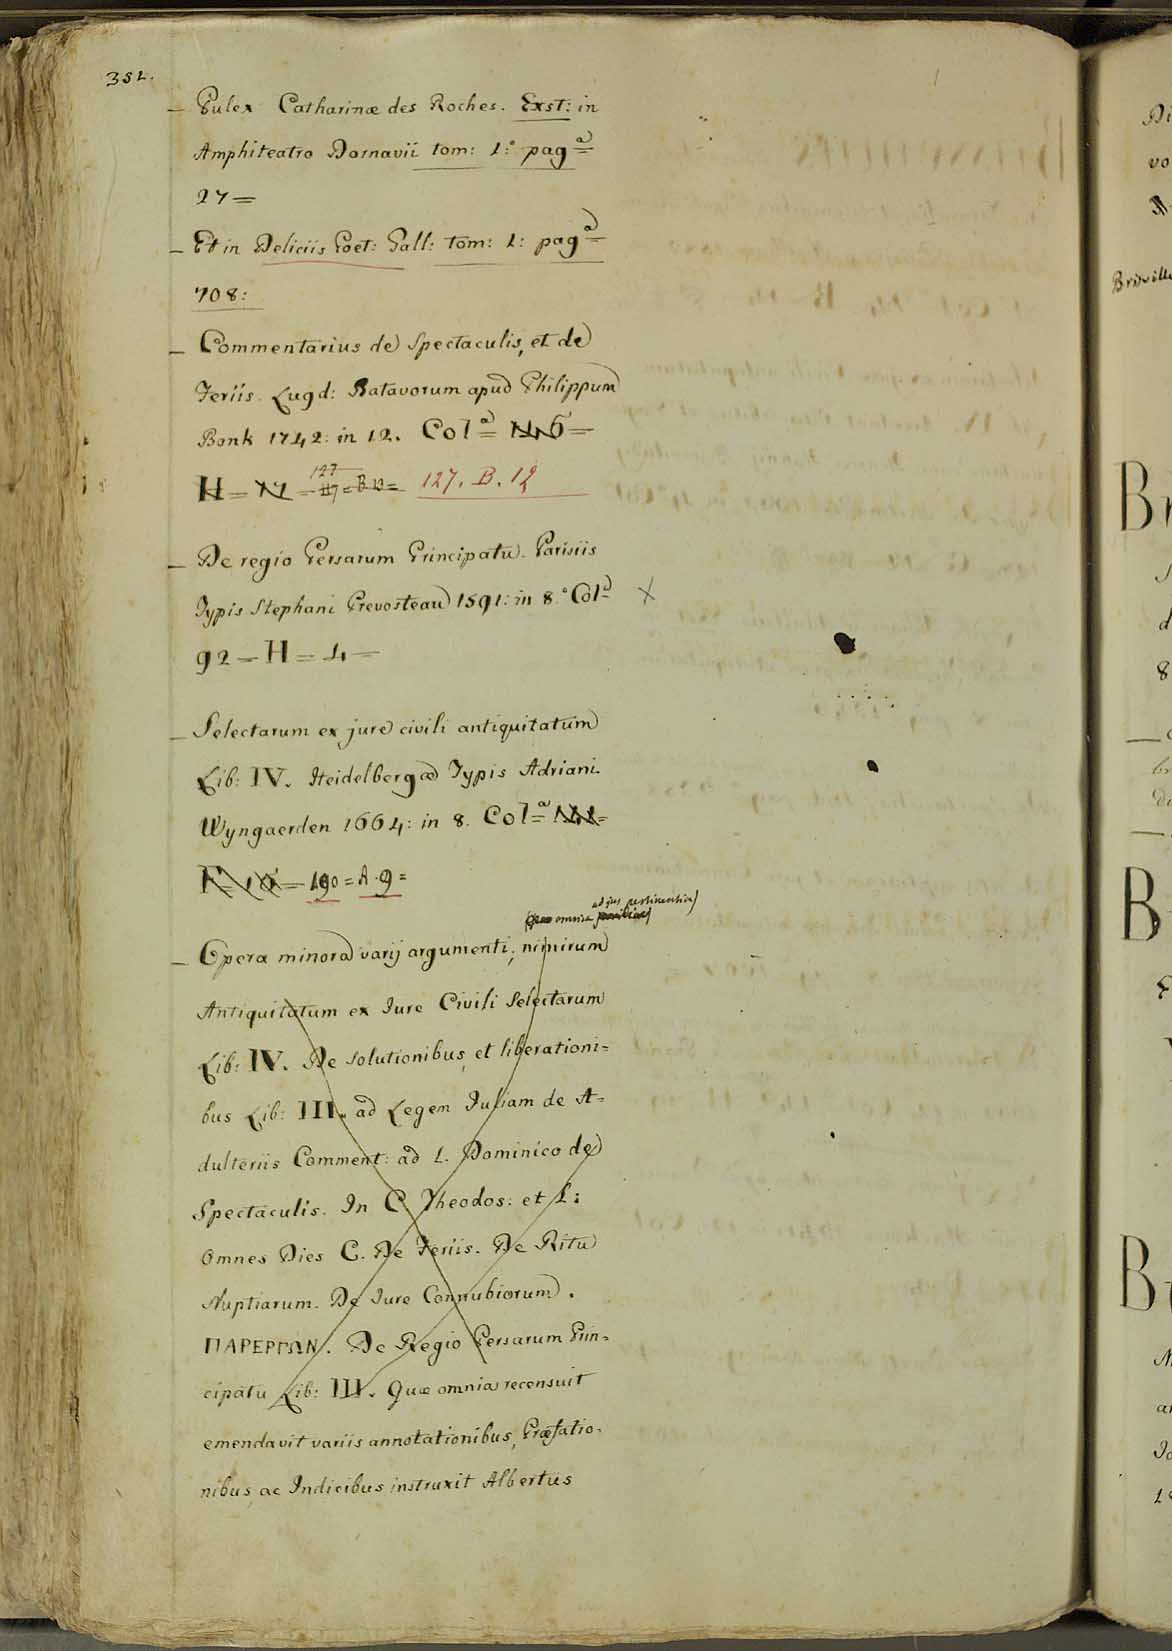 352.
– Pulex Catharinæ des Roches. Exst: in
Amphiteatro Dornavii tom: 1:° pag.ª =
27 =
– Et in Deliciis Poet: Gall: tom: 1: pag.ª =
708:
– Commentarius de Spectaculis, et de
Feriis. Lugd: Batavorum apud Philippum
Bonk 1742: in 12. Col.ª =
H = N = 127 = B 12 = 127. B. 12
– De regio Persarum Principatu. Parisiis
Typis Stephani Prevosteau 1591: in 8.° Col.ª X
92 – H = 4 –
– Selectarum ex jure civili antiquitatum
Lib: IV. Heidelbergæ Typis Adriani
Wyngaerden 1664: in 8. Col.ª =
190 = A. 9 =
Quæ omnia ad jus pertinentia
– Opera minora varij argumenti, nimirum
Antiquitatum ex Jure Civili Selectarum
Lib: IV. De solutionibus, et liberationi=
bus Lib: III. ad Legem Juliam de A=
dulteriis Comment: ad L. Dominico de
Spectaculis. In C. Theodos: et L:
Omnes Dies C. De Feriis. De Ritu
Nuptiarum. De Jure Connubiorum.
ΠΑΡΕΡΓΩΝ. De Regio Persarum Prin=
cipatu Lib: III. Quæ omnia recensuit
emendavit variis annotationibus, Præfatio=
nibus, ac Indicibus instruxit Albertus
Br
B